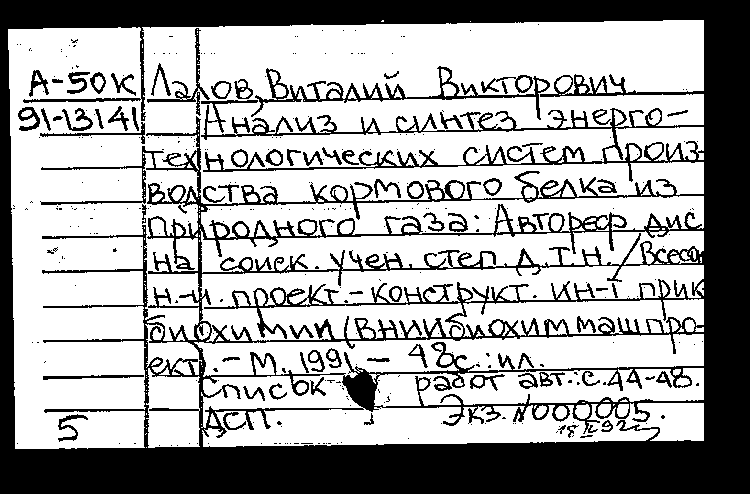 А-50к Лалов, Виталий Викторович
91-13141 Анализ и синтез энерго-
технологических систем произ-
водства кормового белка из
природного газа: Автореф. дис
на соиск. учен. степ. д.т.н. / Всесоюз
н.-и. проект.-конструкт. ин-т прик
биохимии (ВНИИбиохиммашпро-
ект). - М., 1991 - 48с.: ил.
Список работ авт.: с. 44-48.
ДСП. Экз. N000005.
5 18 II 92г